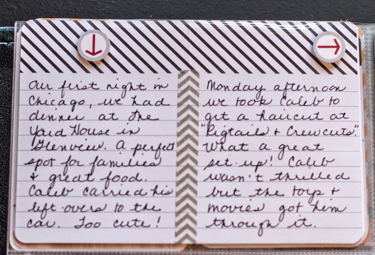 Our first night in
Chicago, we had
dinner at the
Yard House in
Glenview. A perfect
spot for families
& great food.
Caleb carried his
left-overs to the
car. Too cute!
Monday afternoon
we took Caleb to
get a haircut at
"Pigtails & Crewcuts".
What a great
set up! Caleb
wasn't thrilled
but the toys &
movies got him
through it.